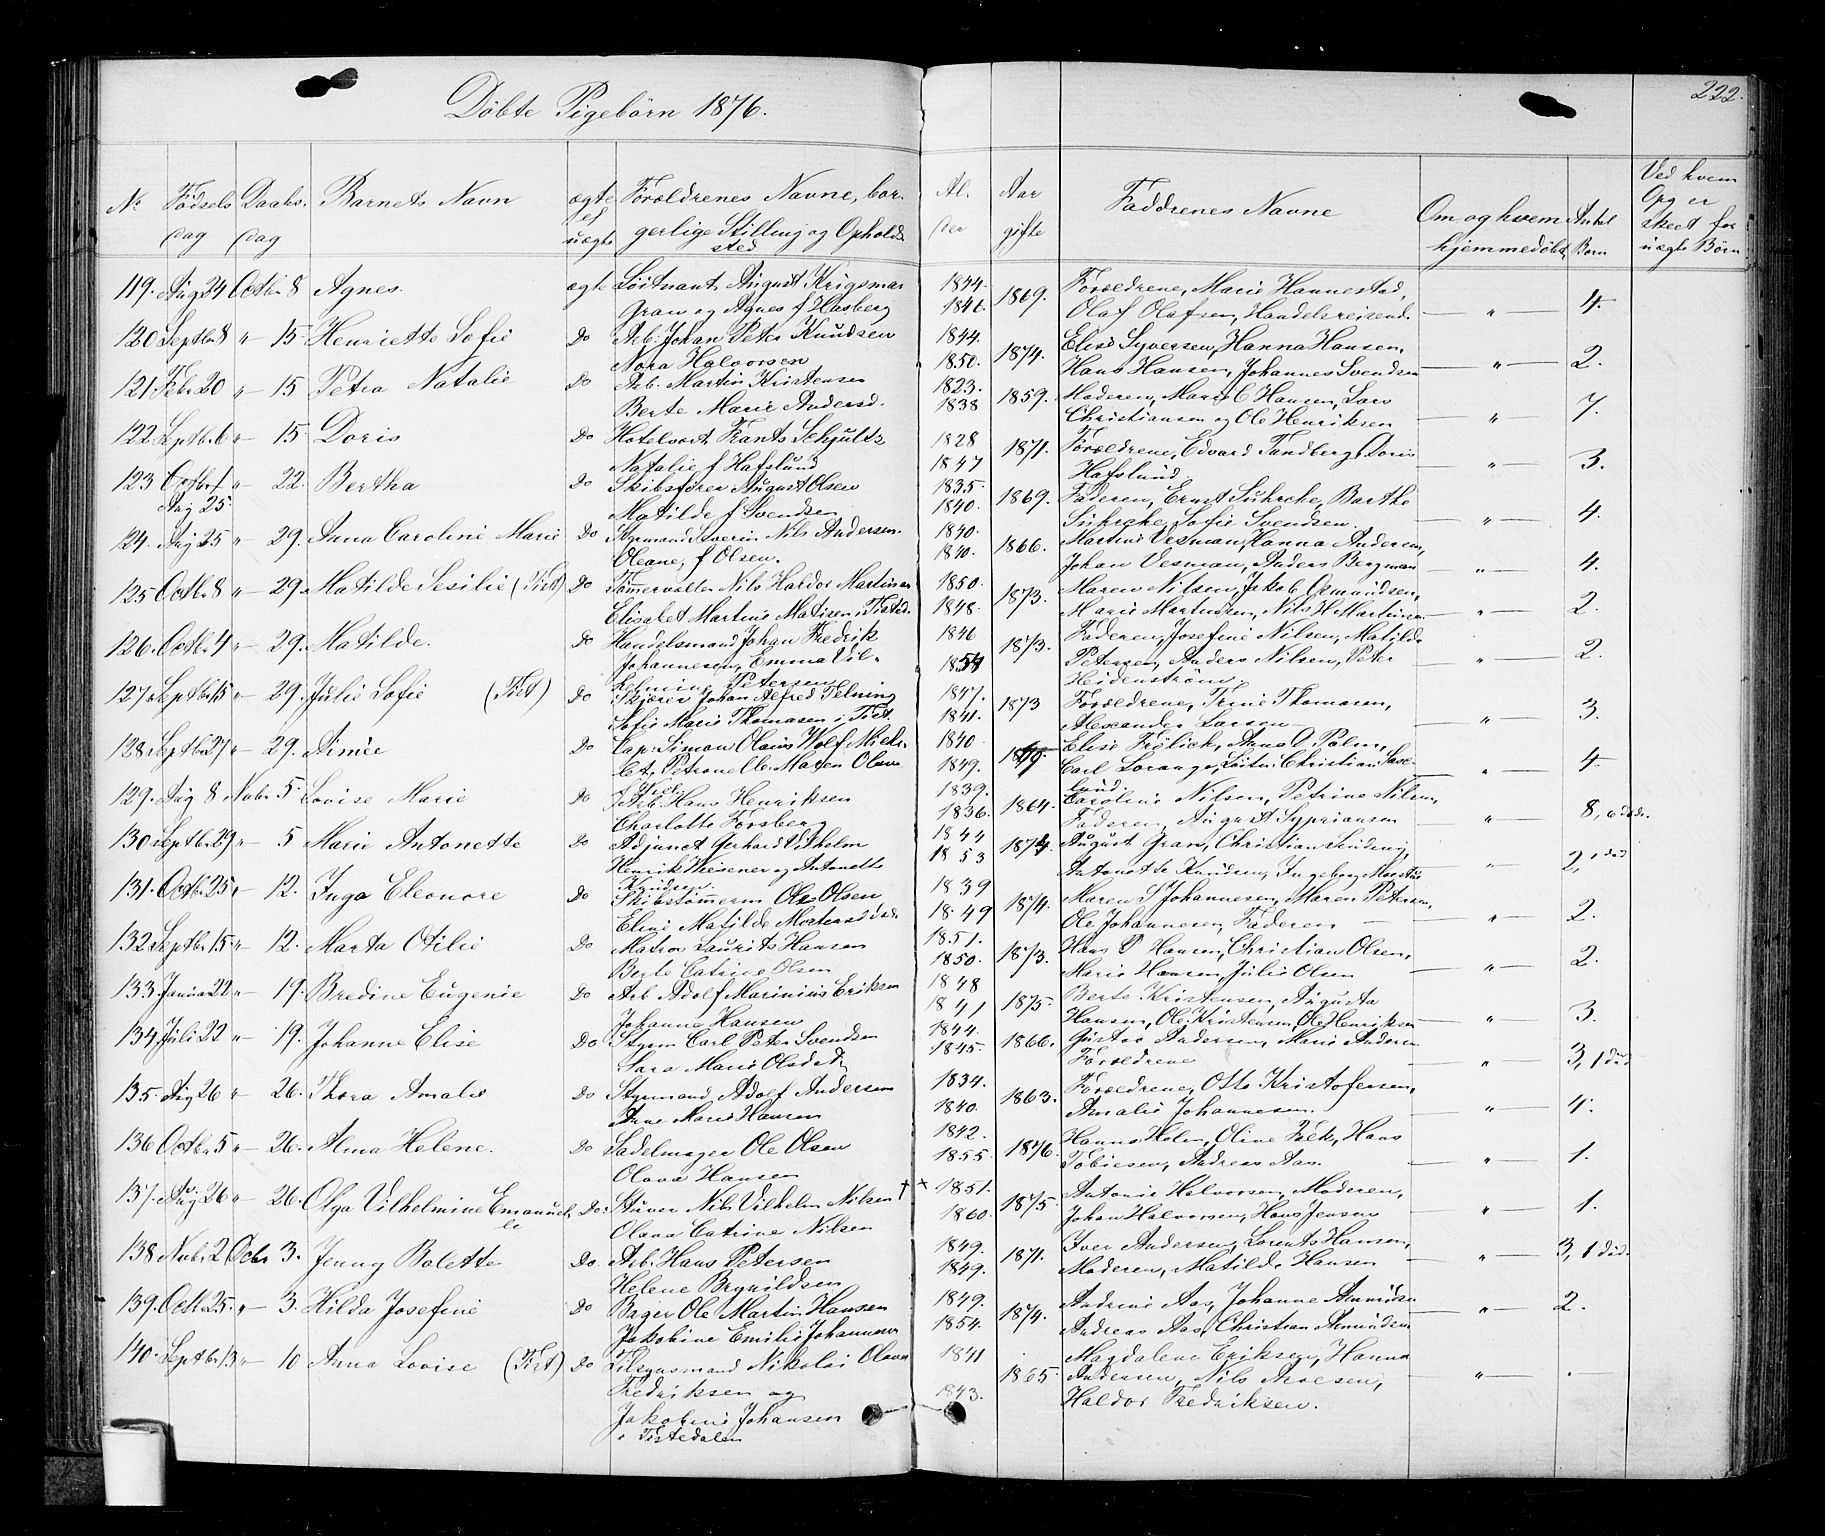 222.
Døbte Pigebörn 1876.
No Fødsels dag Daabs. dag Barnets Navn ægte el uægte Forældrenes Navne, bor. gerlige Stilling og Opholds sted Al. der Aar gifte Faddrenes Navne Om og hvem hjemmedøbt Antal Born Ved hvem Opg er skeet for uægte Børn
119. Aug 24 Octbr 8 Agnes. ægte Löitnant August Krigsman 1844. 1869. Forældrene, Marie Hannestad, 4.
Gran og Agnes f Hasberg 1846. Olaf Olafsen, Handelsreisend. — " —
120 Septbr 8 " 15 Henriette Sofie Do Arb. Johan Peter Knudsen 1844. 1874. Elise Syversen, Hanna Hansen, 2.
Nora Halvorsen 1850. Hans Hansen, Johannes Svendsen — " —
121. Febr 20 " 15 Petra Natalie Do Arb. Martin Kristensen 1823. 1859. Moderen, Marie C Hansen, Lars 7.
Berte Marie Andersd. 1838 Christiansen og Ole Henriksen — " —
122 Septbr 6 " 15 Doris Do Hotelvært Frants Schjultz 1828 1871. Forældrene, Edvard Tandberg, Doris 3.
Natalie f Hafslund 1847 Hafslund — " —
123 Octbr 1 " 22. Bertha Do Skibsfører August Olsen 1835. 1869. Faderen, Ernst Suhrcke, Barthe 4.
Aug 25. Matilde f Svendsen 1840. Suhrcke, Sofie Svendsen. — " —
124. Aug 25 " 29. Anna Caroline Marie Do Styrmand Severin Nils Andersen. 1840. 1866. Martine Vesman, Hanna Andersen, 4.
Oleane, f Olsen. 1840. Johan Vesman, Anders Bergman — " —
125 Octbr 8 " 29. Matilde Sesilie (Tist) Do Tømervælter Nils Haldor Martinsen 1850. 1873. Maren Nilsen, Jakob Osmundsen, 2.
Elisabet Martine Matisen i Tisted. 1848. Marie Martinsen, Nils H Martinsen — " —
126. Octb. 4 " 29. Matilde. Do Handelsmand Johan Fredrik 1846 1873. Faderen, Josefine Nilsen, Matilde 2.
Johannesen, Emma Vil- 1854 Petersen, Anders Nilsen, Peter — " —
helmine Petersen Heidenstrøm.
127. Septbr 15 " 29. Julie Sofie (Tist) Do Skjærer Johan Alfred Telning 1847. 1873 Forældrene, Trine Thomasen, 3.
Sofie Marie Thomasen i Tist. 1841. Alexander Larsen — " —
128 Septbr 27 " 29. Aimée Do Cap: Simon Olaus Wolf Miche- 1840. 1869. Elise Frölich, Anna G Palm, 4.
let, Petronelle Maren Olava 1849. Carl Lorange, Löitn. Christian Saxe- — " —
lund.
129. Aug 8 Novbr 5 Lovise Marie Do Arb. Hans Henriksen 1839. 1864. Caroline Nilsen, Petrine Nilsen, 8, 6 døde.
Charlotte Forsberg 1836. Faderen, August Sypriansen — " —
130 Septbr 29 " 5 Marie Antonette Do Adjunct Gerhard Vilhelm 1844 1874. August Gran, Christian 2, 1 død
Henrik Wiesener og Antonette 1853 Antonette Knudsen, Ingeborg — " —
Knudsen.
131. Octbr 25 " 12. Inga Eleonore Do Skibstømerm Ole Olsen 1839 1874. Maren S Johannesen, Maren Petersen, 2.
Eline Matilde Mortensd. 1849 Ole Johannesen, Faderen — " —
132 Septbr 15 " 12. Marta Otilie Do Matros Laurits Hansen 1851. 1873. Hans P Hansen, Christian Olsen, 2.
Berte Catrine Olsen 1850. Marie Hansen, Julie Olsen — " —
133 Januar 22 " 19. Bredine Eugenie Do Arb Adolf Marinius Eriksen 1848 1875. Berte Kristensen, Augusta 3.
Johanne Hansen 1841 Hansen, Ole Kristensen, Ole Henriksen — " —
134 Juli 22 " 19. Johanne Elise Do Styrm Carl Peter Svendsen 1844. 1866. Gustav Andersen, Marie Andersen 3, 1 død
Sara Marie Olsd 1845. Forældrene — " —
135. Aug 26 " 26. Thora Amalie Do Styrmand Adolf Andersen 1834. 1863. Forældrene, Otto Kristofersen, 4.
Anne Marie Hansen 1840. Amalie Johannesen. — " —
136 Octbr 5 " 26. Alma Helene. Do Sadelmager Ole Olsen 1842. 1876. Hanna Holm, Oline Falk, Hans 1.
Olava Hansen 1855. Tobiesen, Andreas Aas. — " —
137. Aug 26 " 26. Olga Vilhelmine Emanuel- Do: Stuver Nils Vilhelm Nilsen † † 1851. 1875. Antonie Halvorsen, Moderen, 1.
le Olava Catrine Nilsen 1860. Johan Halvorsen, Hans Jensen — " —
138 Novbr 2 Decbr 3. Jenny Bolette Do. Arb. Hans Petersen 1849. 1871. Iver Andersen, Lorents Hansen, 3, 1 død.
Helene Brynildsen 1849. Moderen, Matilde Hansen — " —
139. Octb. 25. " 3. Hilda Josefine Do Bager Ole Martin Hansen 1849. 1874. Andrine Aas, Johanne Amundsen 2.
Jakobine Emilie Johannesen 1854. Andreas Aas, Christian Amundsen — " —
140. Septbr 13 " 10 Anna Lovise (Tist) Do Tilsynsmand Nikolai Olava 1841 1865 Magdalene Eriksen, Hanna
Fredriksen og 1843. Andersen, Nils Aroesen, — " —
Jakobine Johansen Haldor Fredriksen.
i Tistedalen